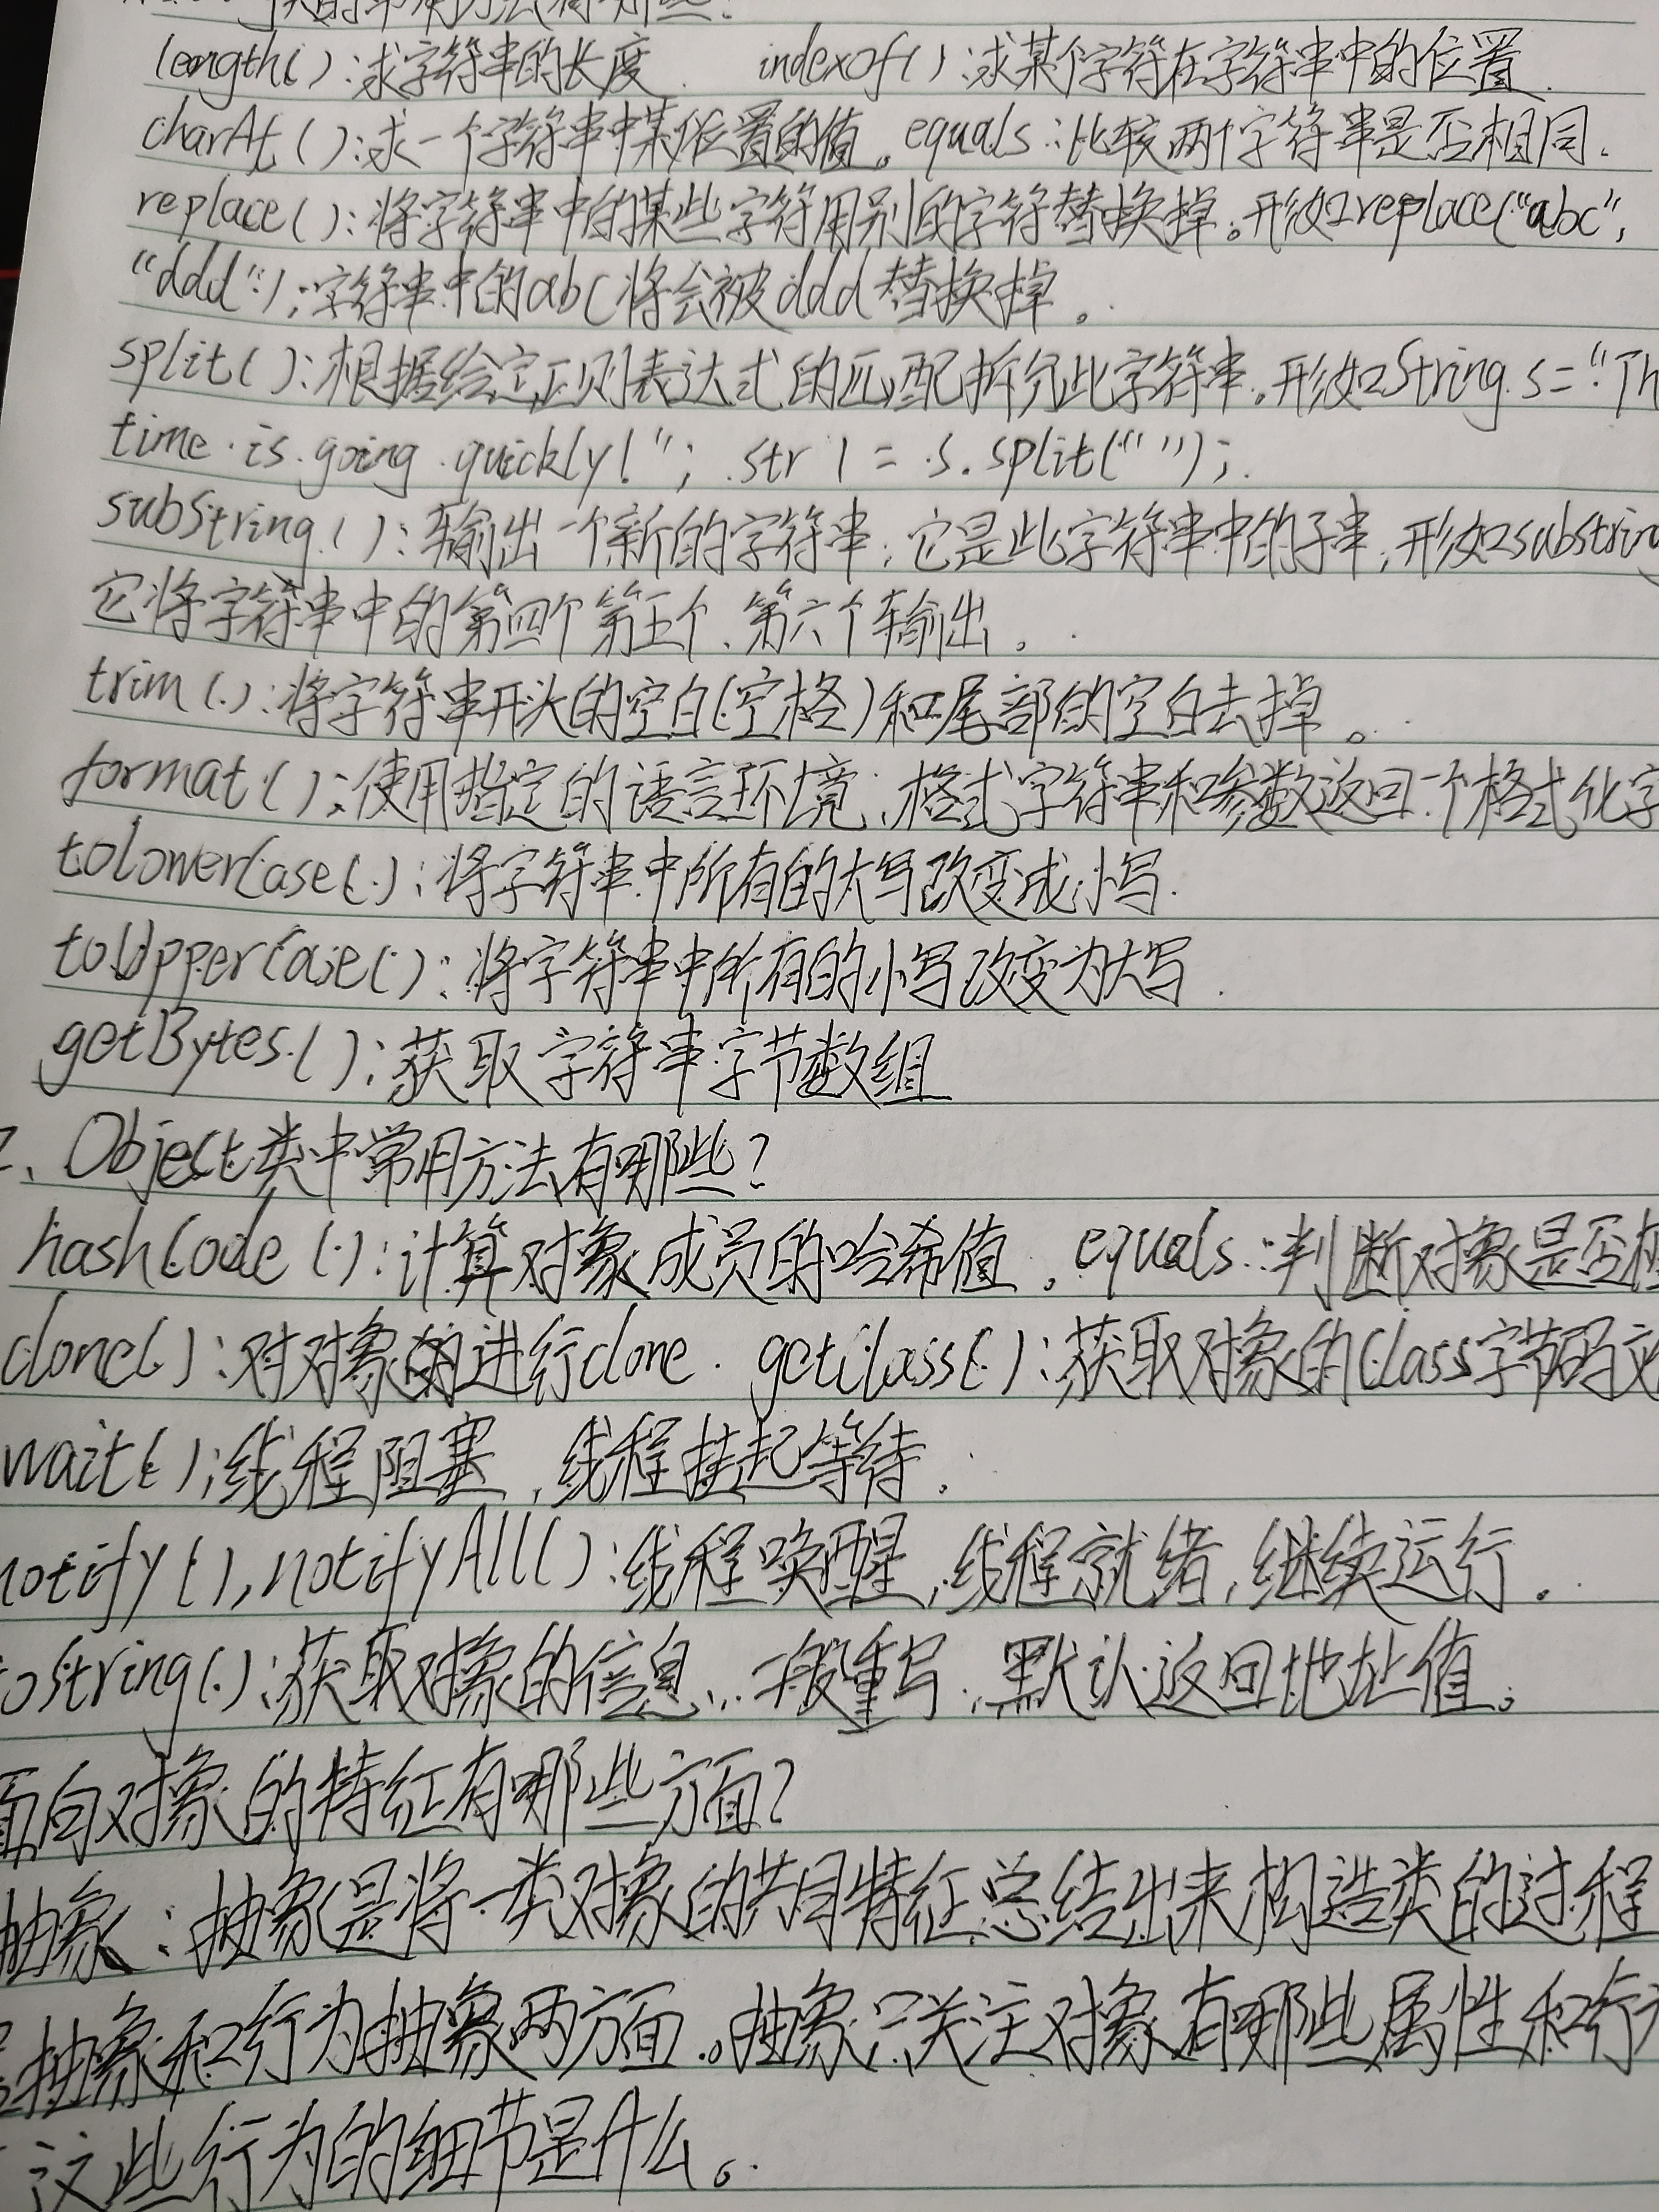 的常用方法有哪些?
length():求字符串的长度. indexOf():求某个字符在字符串中的位置.
charAt():求一个字符串中某个位置的值。equals:比较两个字符串是否相同.
replace():将字符串中的某些字符用别的字符替换掉。形如replace("abc",
"ddd");字符串中的abc将会被ddd替换掉。
split():根据给定正则表达式的匹配拆分此字符串。形如String s="Th
time is going quickly!"; str1=s.split(" ");
substring():输出一个新的字符串,它是此字符串中的子串,形如substring
它将字符串中的第四个第五个、第六个输出。
trim():将字符串开头的空白(空格)和尾部的空白去掉。
format():使用指定的语言环境、格式字符串和参数返回一个格式化字
toLowerCase():将字符串中所有的大写改变成小写.
toUpperCase():将字符串中所有的小写改变为大写.
getBytes():获取字符串字节数组
、Object类中常用方法有哪些?
hashCode():计算对象成员的哈希值。equals:判断对象是否
clone():对对象进行clone. getClass():获取对象的Class字节码文
wait():线程阻塞,线程挂起等待.
notify(),notifyAll():线程唤醒,线程就绪,继续运行。
toString():获取对象的信息,一般重写,默认返回地址值。
面向对象的特征有哪些方面?
抽象:抽象是将一类对象的共同特征总结出来构造类的过程
抽象和行为抽象两方面。抽象只关注对象有哪些属性和行
这些行为的细节是什么。